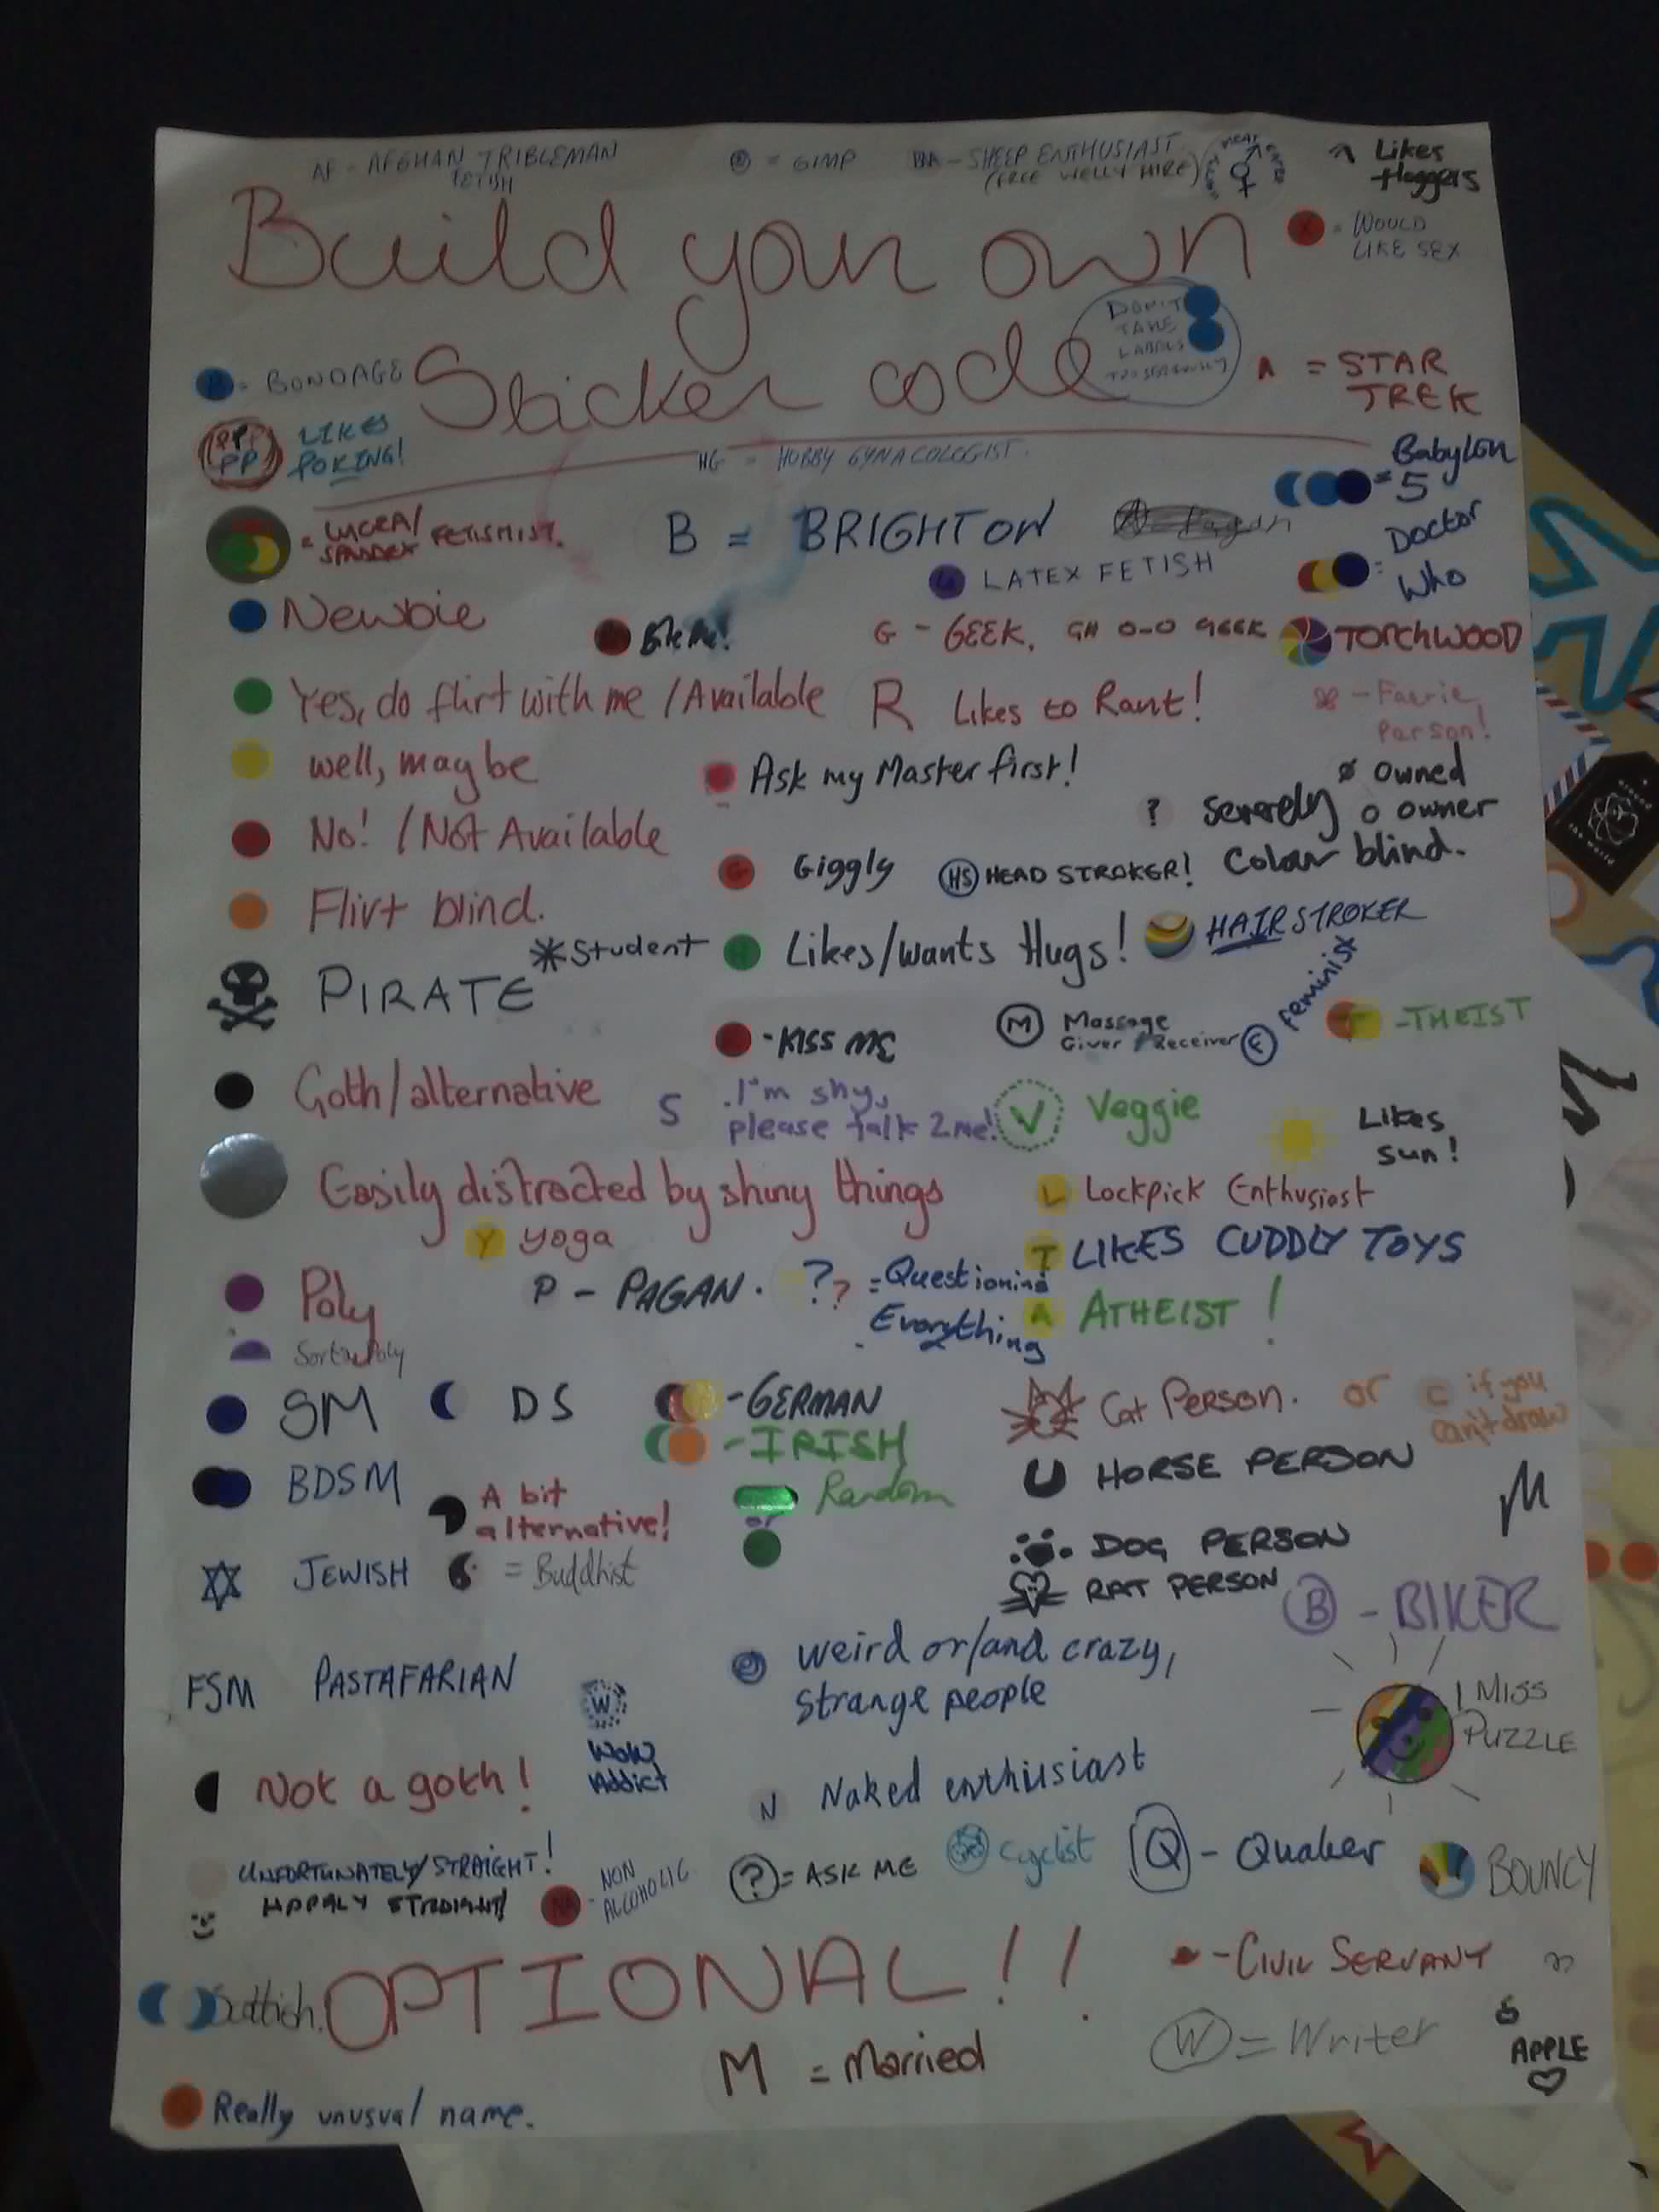 AF - AFGHAN TRIBLEMAN
FETISH
= GIMP
- SHEEP ENTHUSIAST
(FREE WELLY HIRE)
Likes
Huggers
Build your own
X = WOULD
LIKE SEX
DON'T
TAKE
LABELS
TOO SERIOUSLY
B = BONDAGE
Sticker code
A = STAR
TREK
PPP
PP
LIKES
POKING!
HG = HOBBY GYNACOLOGIST.
= Babylon
5
= LYCRA/
SPANDEX FETISHIST.
B = BRIGHTON
Pagan
= Doctor
Who
LATEX FETISH
Newbie
Bite Me!
G - GEEK, GH O-O GEEK
TORCHWOOD
Yes, do flirt with me / Available
R Likes to Rant!
- Faerie
Person!
well, maybe
Ask my Master first!
ø owned
o owner
? Severely
Colour blind.
No! / Not Available
G Giggly
HS HEAD STROKER!
Flirt blind.
* Student
H Likes/wants Hugs!
HAIR STROKER
PIRATE
- KISS ME
M Massage
Giver / Receiver
F Feminist
T - THEIST
Goth/alternative
S I'm shy,
please talk 2 me!
V Veggie
Likes
sun!
Easily distracted by shiny things
L Lockpick Enthusiast
Y yoga
T LIKES CUDDLY TOYS
Poly
P - PAGAN.
?? = Questioning
Everything
A ATHEIST!
Sorta Poly
SM
DS
- GERMAN
Cat Person. or C if you
can't draw
- IRISH
BDSM
A bit
alternative!
Random
or
HORSE PERSON
M
JEWISH
= Buddhist
DOG PERSON
RAT PERSON
B - BIKER
FSM PASTAFARIAN
W
WoW
Addict
weird or/and crazy,
strange people
I MISS
PUZZLE
Not a goth!
N Naked enthusiast
UNFORTUNATELY STRAIGHT!
HAPPALY STRAIGHT!
NA - NON
ALCOHOLIC
? = ASK ME
Cyclist
Q - Quaker
BOUNCY
Scottish.
OPTIONAL!!
- CIVIL SERVANT
M = Married
W = Writer
APPLE
Really unusual name.